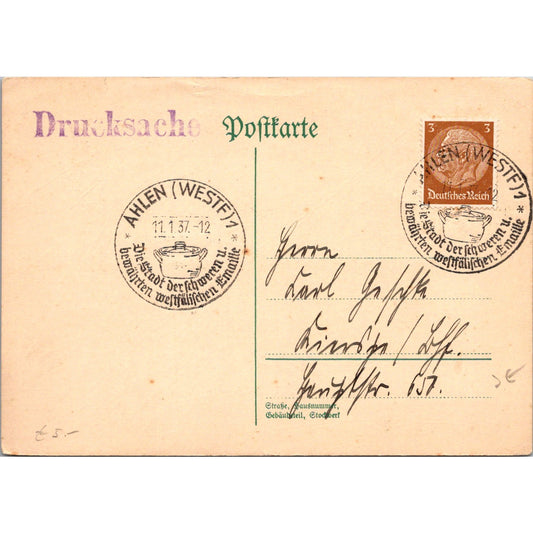 Drucksache
Postkarte
3 3
Deutsches Reich
* AHLEN (WESTF) 1 *
11.1.37.-12
Die Stadt der schweren u.
bewährten westfälischen Emaille
* AHLEN (WESTF) 1 *
Die Stadt der schweren u.
bewährten westfälischen Emaille
Herrn
Karl Geschke
Kierspe / Bhf.
Hauptstr.
Straße, Hausnummer,
Gebäudeteil, Stockwerk
5.-